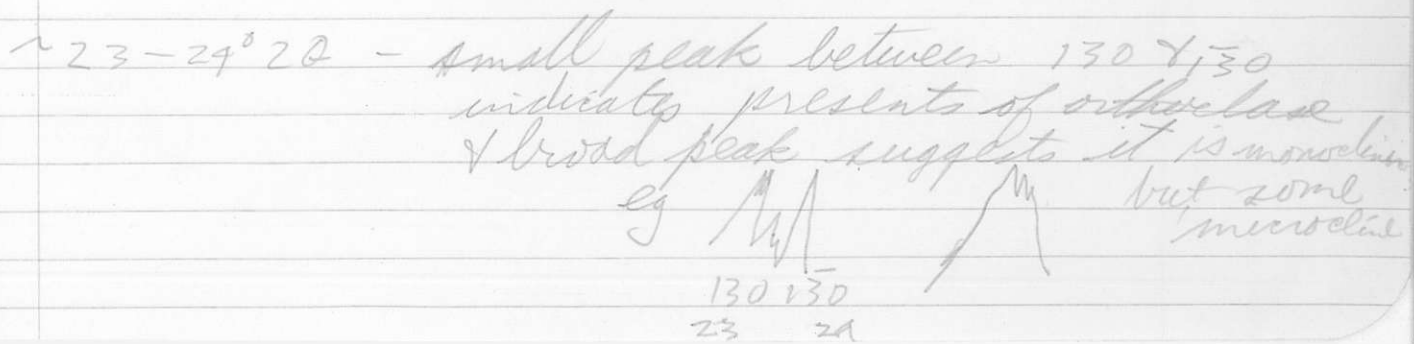 ~23-24° 2θ - small peak between 130 & 13̅0
indicates presents of orthoclase
& broad peak suggests it is monoclinic
but some
microcline
eg
130 13̅0
23 24